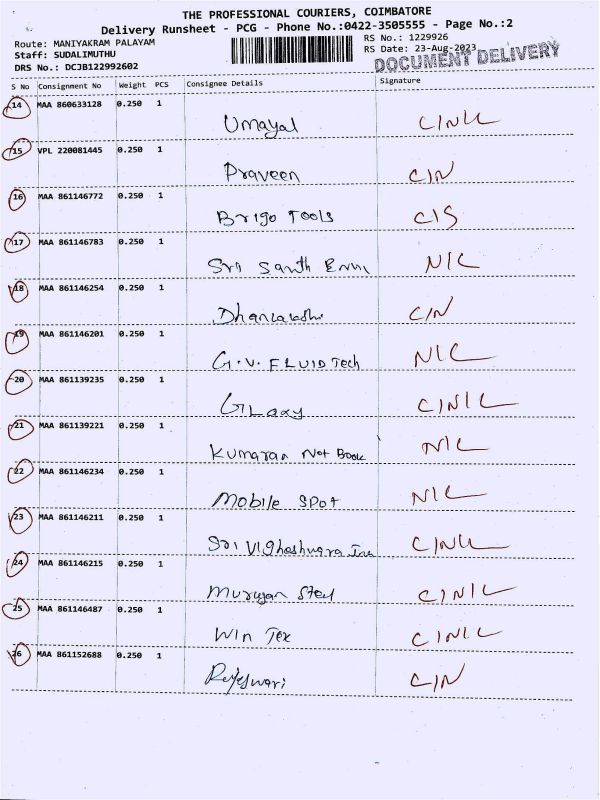 THE PROFESSIONAL COURIERS, COIMBATORE
Delivery Runsheet - PCG - Phone No.:0422-3505555 - Page No.:2
Route: MANIYAKRAM PALAYAM RS No.: 1229926
Staff: SUDALIMUTHU RS Date: 23-Aug-2023
DRS No.: DCJB122992602 DOCUMENT DELIVERY
S No Consignment No Weight PCS Consignee Details Signature
14 MAA 860633128 0.250 1
Umayal CINIL
15 VPL 220081445 0.250 1
Praveen CIN
16 MAA 861146772 0.250 1
Brigo Tools CIS
17 MAA 861146783 0.250 1
Sri Santh NIC
18 MAA 861146254 0.250 1
CIN
19 MAA 861146201 0.250 1
G.V. FLUID Tech NIC
20 MAA 861139235 0.250 1
GLaxy CINIL
21 MAA 861139221 0.250 1
Kumaran Not Book NIC
22 MAA 861146234 0.250 1
Mobile SPot NIC
23 MAA 861146211 0.250 1
Sri CINIL
24 MAA 861146215 0.250 1
Murugan Steel CINIL
25 MAA 861146487 0.250 1
Win Tex CINIL
26 MAA 861152688 0.250 1
Rajeswari CIN